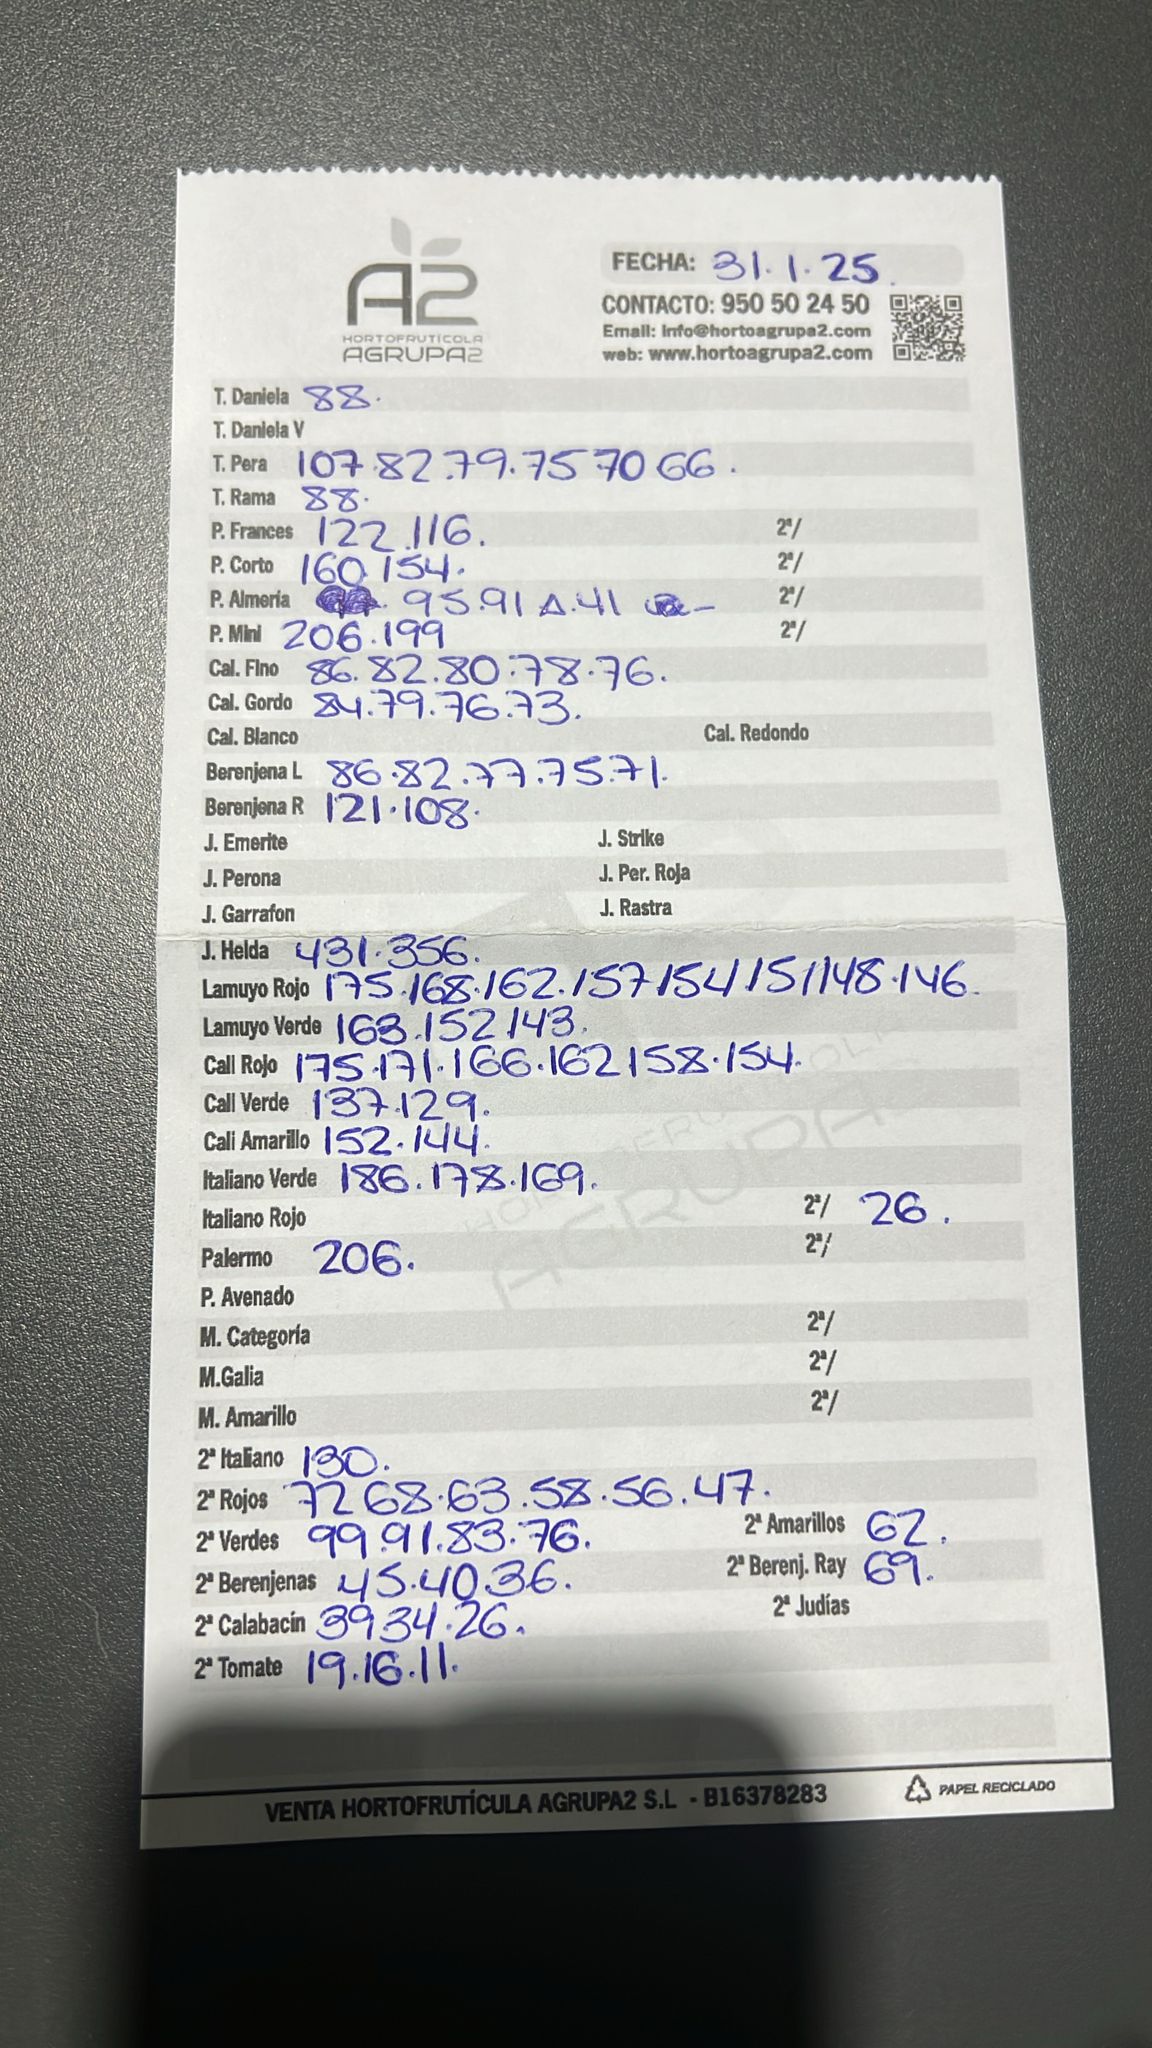 A2
HORTOFRUTÍCOLA
AGRUPA2
FECHA: 31.1.25.
CONTACTO: 950 50 24 50
Email: info@hortoagrupa2.com
web: www.hortoagrupa2.com
T. Daniela 88.
T. Daniela V
T. Pera 107.82.79.75 70 66.
T. Rama 88.
P. Frances 122.116. 2ª/
P. Corto 160.154. 2ª/
P. Almería 95.91 Δ.41 - 2ª/
P. Mini 206.199 2ª/
Cal. Fino 86.82.80.78.76.
Cal. Gordo 84.79.76.73.
Cal. Blanco Cal. Redondo
Berenjena L 86.82.77.75.71.
Berenjena R 121.108.
J. Emerite J. Strike
J. Perona J. Per. Roja
J. Garrafon J. Rastra
J. Helda 431.356.
Lamuyo Rojo 175.168.162.157/154/151/148.146.
Lamuyo Verde 163.152.143.
Cali Rojo 175.171.166.162 158.154.
Cali Verde 137.129.
Cali Amarillo 152.144.
Italiano Verde 186.178.169.
Italiano Rojo 2ª/ 26.
Palermo 206. 2ª/
P. Avenado
M. Categoría 2ª/
M.Galia 2ª/
M. Amarillo 2ª/
2ª Italiano 130.
2ª Rojos 72 68.63.58.56.47.
2ª Verdes 99.91.83.76. 2ª Amarillos 62.
2ª Berenjenas 45.40.36. 2ª Berenj. Ray 69.
2ª Calabacín 39.34.26. 2ª Judías
2ª Tomate 19.16.11.
VENTA HORTOFRUTÍCULA AGRUPA2 S.L - B16378283
PAPEL RECICLADO